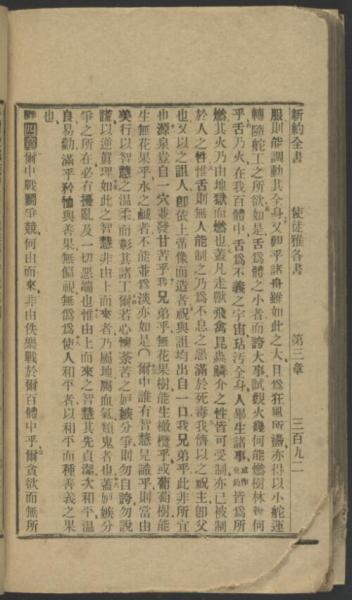 新約全書　使徒雅各書　第三章　三百九二
服則能調動其全身又卽乎諸舟雖如此之大且為狂風所漰亦得以小舵運
轉隨舵工之所欲如是舌為體之小者而誇大事試觀火幾何能燃樹林幾何
乎舌乃火在我百體中舌為不義之宇宙玷污全身人畢生諸事皆為所
燃其火乃由地獄而燃也蓋凡走獸飛禽昆蟲鱗介之性皆可受制亦已被制
於人之性惟舌則無人能制之乃為不息之惡滿於死毒我儕以之祝主卽父
也又以之詛人卽依上帝像而造者祝與詛均出自一口我兄弟乎此非所宜
也源泉豈自一穴並發甘苦乎我兄弟乎無花果樹能生橄欖乎或葡萄樹能
生無花果乎水之鹹者不能並為淡亦如是○爾中誰有智慧見識乎則當由
美行以智慧之温柔而彰其諸工爾若心懷荼苦之妒嫉分爭則勿自誇勿說
謊以逆眞理如此之智慧非由上而來者乃屬地屬血氣類鬼者也蓋妒嫉分
爭之所在必有擾亂及一切惡端也惟由上而來之智慧其先貞潔次和平温
良易勸滿乎矜恤與善果無偏視無偽為使人和平者以和平而種善義之果
也
第四章　爾中戰鬭爭競何由而來非由佚樂戰於爾百體中乎爾貪欲而無所